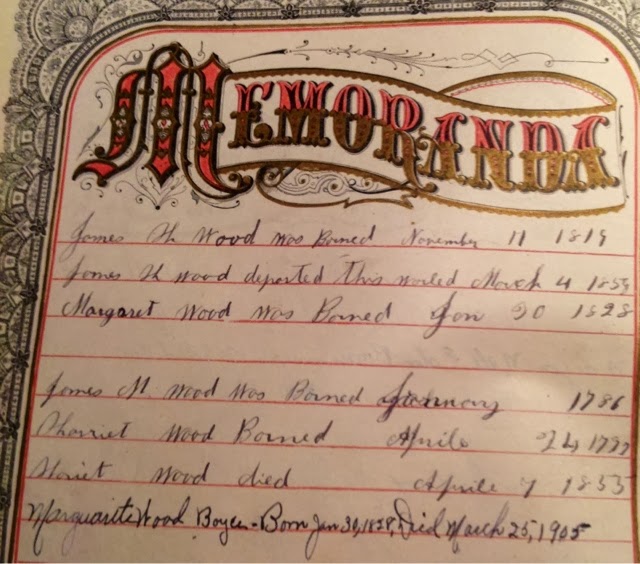 MEMORANDA
James H Wood was Borned November 11 1819
James H Wood departed this world March 4
Margaret Wood was Borned Jan 30 1828
James M Wood Was Borned January 1786
Harriet Wood Borned Aprile 24
Hariet Wood died Aprile 7 1855
Marguarite Wood Boyce - Born Jan 30, 1828, Died March 25, 1905